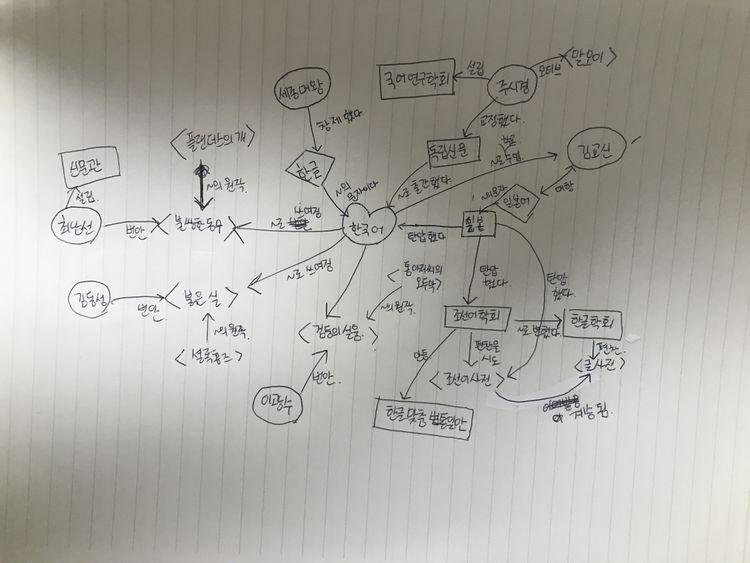 국어연구학회
설립
주시경
모티브
<말모이>
세종대왕
창제했다
교정했다.
<플랜더스의개>
한글
독립신문
김교신
신문관
~의 원작.
~의 문자이다
~로 출간했다
~로 수업.
설립.
일본어
여권
최남선
번안
<불쌍한동무>
~로
쓰여정
한국어
탄압했다
일본
~로 쓰여정
<톰아저씨의
오두막>
탄압
했다.
탄압
했다.
김동성
번안
<붉은 실>
~의 원작.
조선어학회
~로 변했다.
한글학회
~의 원작.
<검둥의 설움.>
만듦
편찬을
시도
편찬.
<셜록홈즈>
<조선어사전>
<큰사전>
번안.
이광수
한글 맞춤법통일안
계승 됨.